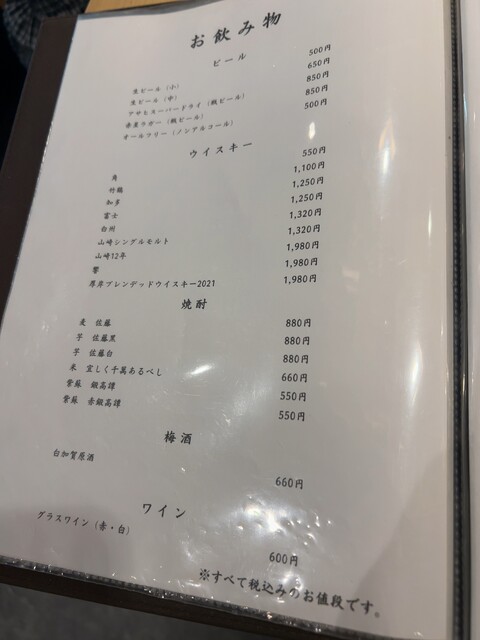 お飲み物
ビール
生ビール（小） 500円
生ビール（中） 650円
アサヒスーパードライ（瓶ビール） 850円
赤星ラガー（瓶ビール） 850円
オールフリー（ノンアルコール） 500円
ウイスキー
角 550円
竹鶴 1,100円
知多 1,250円
富士 1,250円
白州 1,320円
山崎シングルモルト 1,320円
山崎12年 1,980円
響 1,980円
厚岸ブレンデッドウイスキー2021 1,980円
焼酎
麦 佐藤 880円
芋 佐藤黒 880円
芋 佐藤白 880円
米 宜しく千萬あるべし 660円
紫蘇 鍛高譚 550円
紫蘇 赤鍛高譚 550円
梅酒
白加賀原酒 660円
ワイン
グラスワイン（赤・白） 600円
※すべて税込みのお値段です。